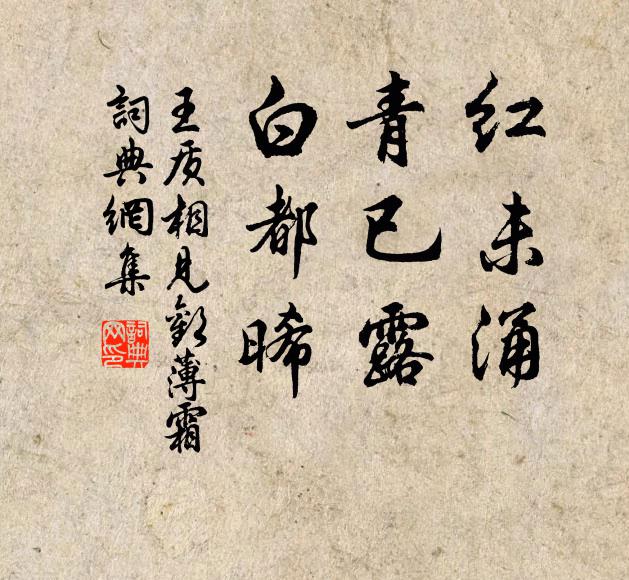 红未涌
青已露
白都晞
王质相见歡薄霜
詞典網集
詞典
网印